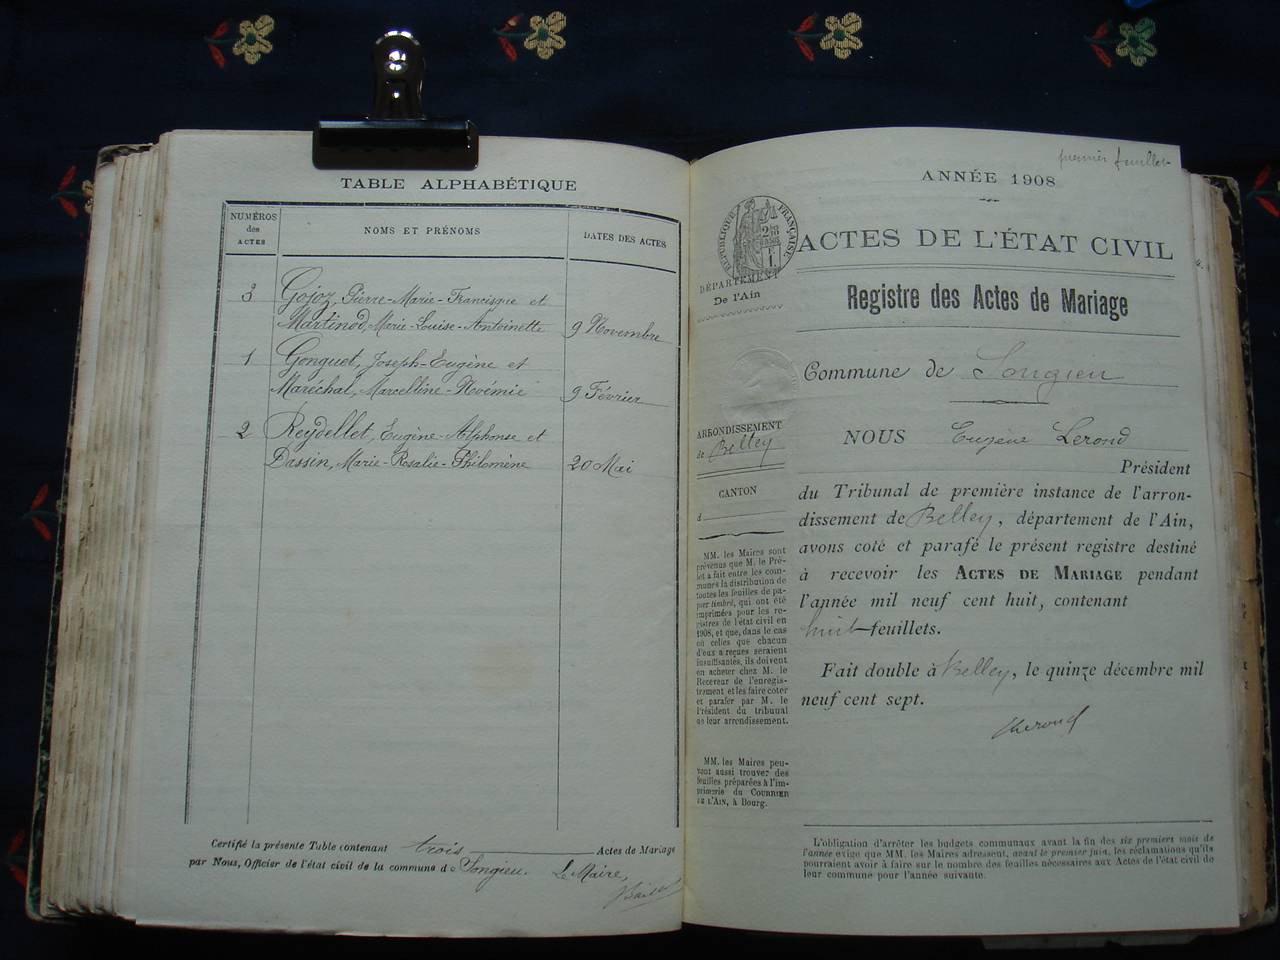 TABLE ALPHABÉTIQUE
NUMÉROS
des
ACTES
NOMS ET PRÉNOMS
DATES DES ACTES
3 Gojoz, Pierre-Marie-Francisque et
Martinod, Marie-Louise-Antoinette 9 Novembre
1 Gonguet, Joseph-Eugène et
Maréchal, Marcelline-Noémie 9 Février
2 Reydellet, Eugène-Alphonse et
Dassin, Marie-Rosalie-Philomène 20 Mai
Certifié la présente Table contenant trois Actes de Mariage
par Nous, Officier de l'état civil de la commune d e Songieu. Le Maire,
premier feuillet
ANNÉE 1908
RÉPUBLIQUE FRANÇAISE
ACTES DE L'ÉTAT CIVIL
DÉPARTEMENT
De l'Ain
Registre des Actes de Mariage
Commune de Songieu
ARRONDISSEMENT
de Belley
CANTON
d
MM. les Maires sont
prévenus que M. le Pré-
fet a fait entre les com-
munes la distribution de
toutes les feuilles de pa-
pier timbré, qui ont été
imprimées pour les re-
gistres de l'état civil en
1908, et que, dans le cas
où celles que chacun
d'eux a reçues seraient
insuffisantes, ils doivent
en acheter chez M. le
Receveur de l'enregis-
trement et les faire coter
et parafer par M. le
président du tribunal
de leur arrondissement.
MM. les Maires peu-
vent aussi trouver des
feuilles préparées à l'im-
primerie du COURRIER
DE L'AIN, à Bourg.
NOUS Eugène Lerond
Président
du Tribunal de première instance de l'arron-
dissement de Belley, département de l'Ain,
avons coté et parafé le présent registre destiné
à recevoir les ACTES DE MARIAGE pendant
l'année mil neuf cent huit, contenant
huit feuillets.
Fait double à Belley, le quinze décembre mil
neuf cent sept.
Lerond
L'obligation d'arrêter les budgets communaux avant la fin des six premiers mois de
l'année exige que MM. les Maires adressent, avant le premier juin, les réclamations qu'ils
pourraient avoir à faire sur le nombre des feuilles nécessaires aux Actes de l'état civil de
leur commune pour l'année suivante.